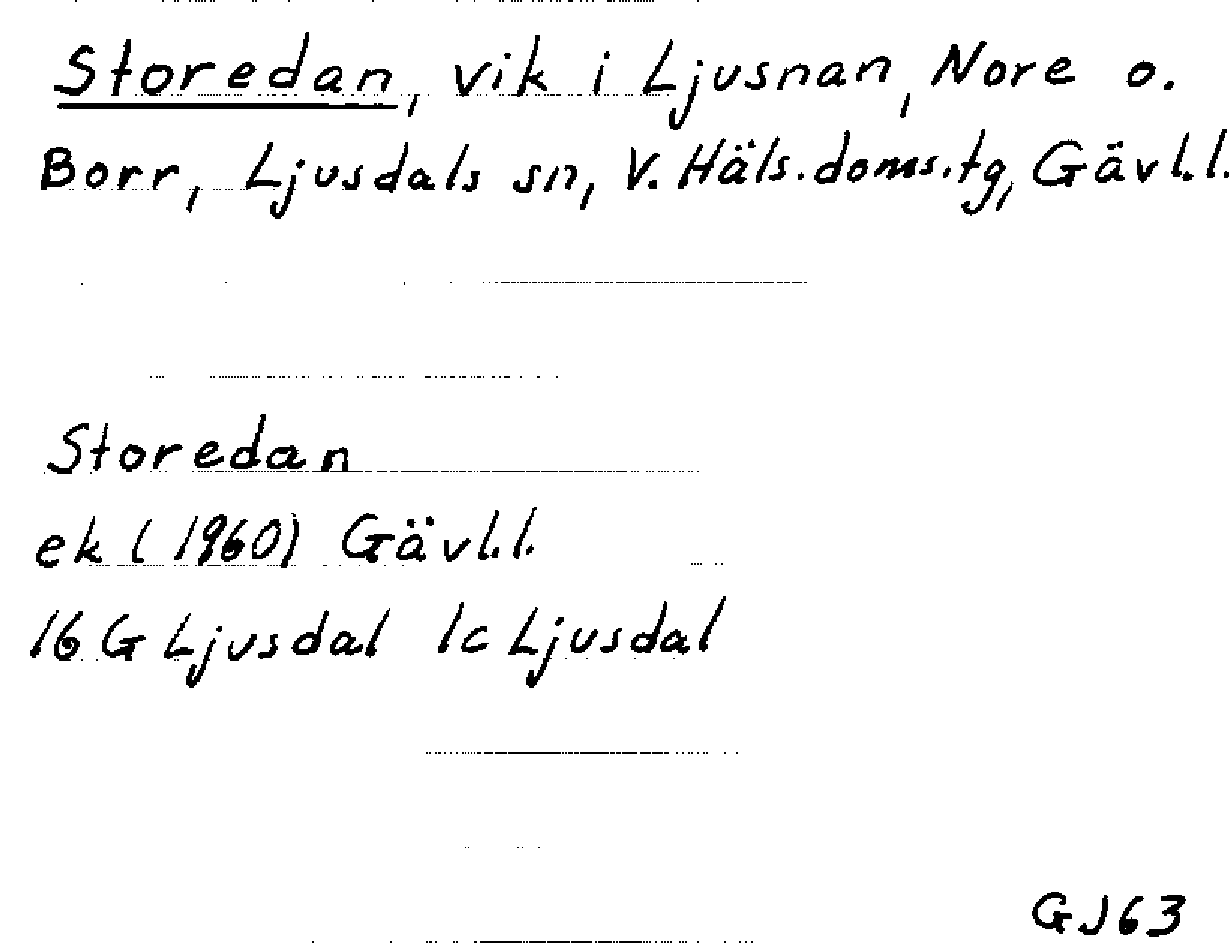 Storedan, vik i Ljusnan, Nore o.
Borr, Ljusdals sn, V. Häls.doms.tg, Gävl.l.
Storedan
ek (1960) Gävl.l.
16 G Ljusdal 1c Ljusdal
GJ63